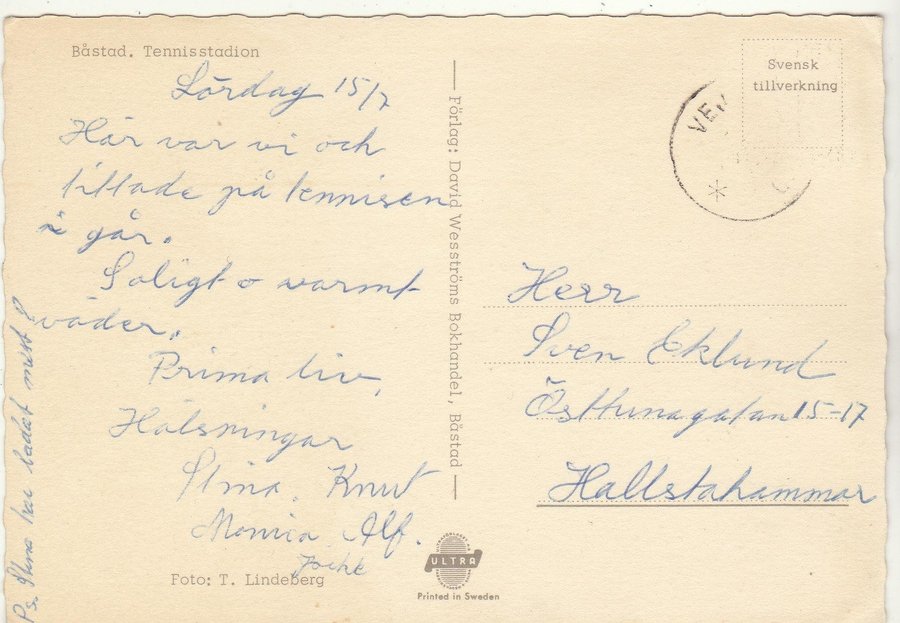 Båstad. Tennisstadion
Lördag 15/7
Här var vi och
tittade på tennisen
i går.
Soligt o varmt
väder.
Prima liv,
Hälsningar
Stina, Knut
Monica Alf.
Ps. Stina har badat mest
Foto: T. Lindeberg
Förlag: David Wesströms Bokhandel, Båstad
ULTRA
Printed in Sweden
Svensk
tillverkning
VEN
Herr
Sven Eklund
Östtunagatan 15-17
Hallstahammar